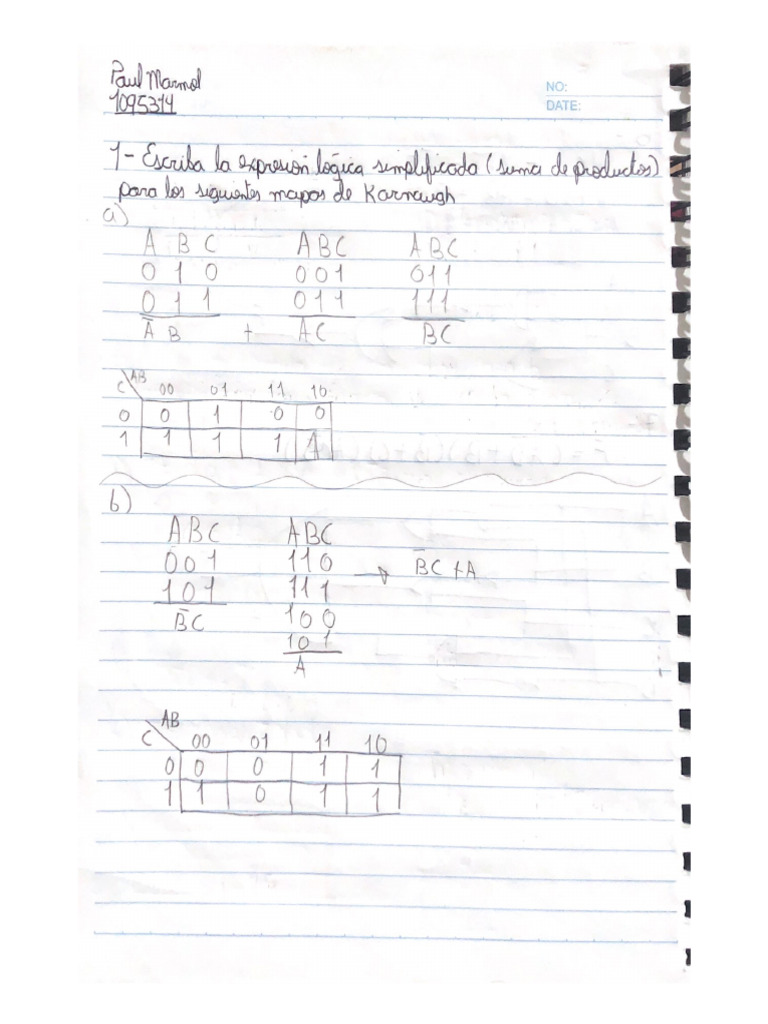 Paul Marmol
1095314
NO:
DATE:
1- Escriba la expresión lógica simplificada (suma de productos)
para los siguientes mapas de Karnaugh
a)
A B C    A B C    A B C
0 1 0    0 0 1    0 1 1
0 1 1    0 1 1    1 1 1
A̅ B + AC BC
C AB 00 01 11 10
0 0 1 0 0
1 1 1 1 1
b)
A B C    A B C
0 0 1    1 1 0
1 0 1    1 1 1 → B̅C + A
B̅C 1 0 0
1 0 1
A
C AB 00 01 11 10
0 0 0 1 1
1 1 0 1 1